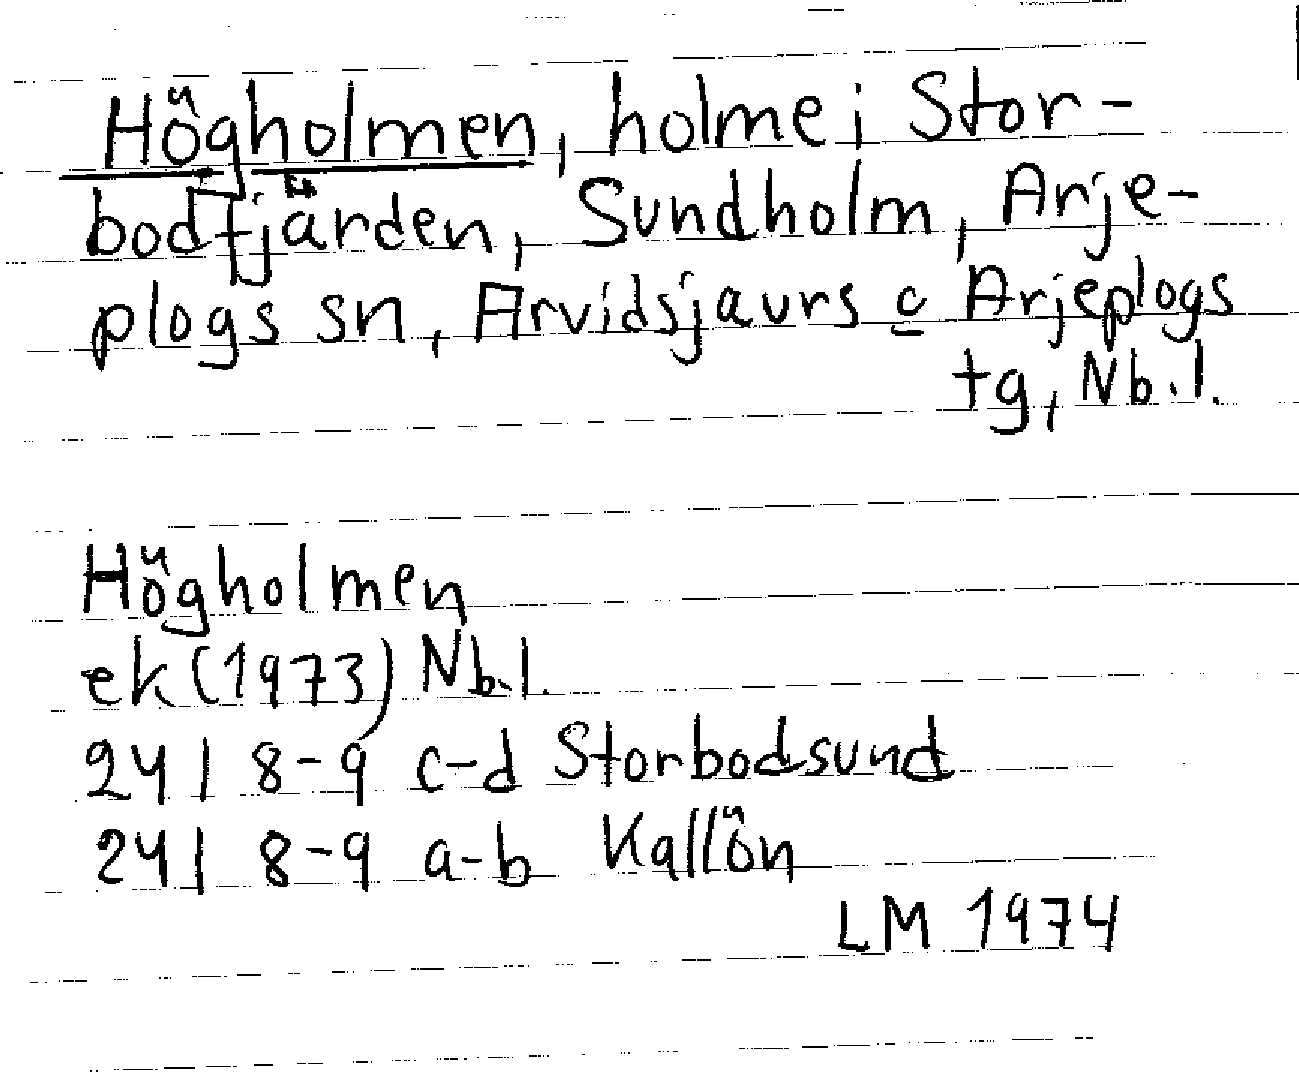 Högholmen, holme i Stor-
bodfjärden, Sundholm, Arje-
plogs sn, Arvidsjaurs o Arjeplogs
tg, Nb.l.
Högholmen
ek (1973) Nb.l.
24 I 8-9 c-d Storbodsund
24 I 8-9 a-b Kallön
LM 1974